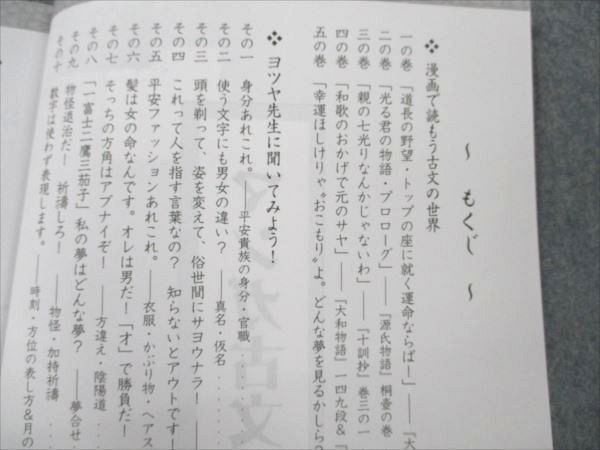 ～ もくじ ～
❖ 漫画で読もう古文の世界
一の巻 「道長の野望・トップの座に就く運命ならば！」――『大
二の巻 「光る君の物語・プロローグ」――『源氏物語』桐壺の巻
三の巻 「親の七光りなんかじゃないわ」――『十訓抄』巻三の一
四の巻 「和歌のおかげで元のサヤ」――『大和物語』一四九段＆『
五の巻 「幸運ほしけりゃ〝おこもり〟よ。どんな夢を見るかしら？
❖ ヨツヤ先生に聞いてみよう！
その一 身分あれこれ。――平安貴族の身分・官職
その二 使う文字にも男女の違い？――真名・仮名
その三 頭を剃って、姿を変えて、俗世間にサヨウナラ！――
その四 これって人を指す言葉なの？ 知らないとアウトです！
その五 平安ファッションあれこれ。――衣服・かぶり物・ヘアス
その六 髪は女の命なんです。オレは男だ！「才」で勝負だ！
その七 そっちの方角はアブナイぞ！――方違え・陰陽道
その八 「一富士二鷹三茄子」私の夢はどんな夢？――夢合せ
その九 物怪退治だ！ 祈禱しろ！――物怪・加持祈禱
その十 数字は使わず表現します。――時刻・方位の表し方＆月の